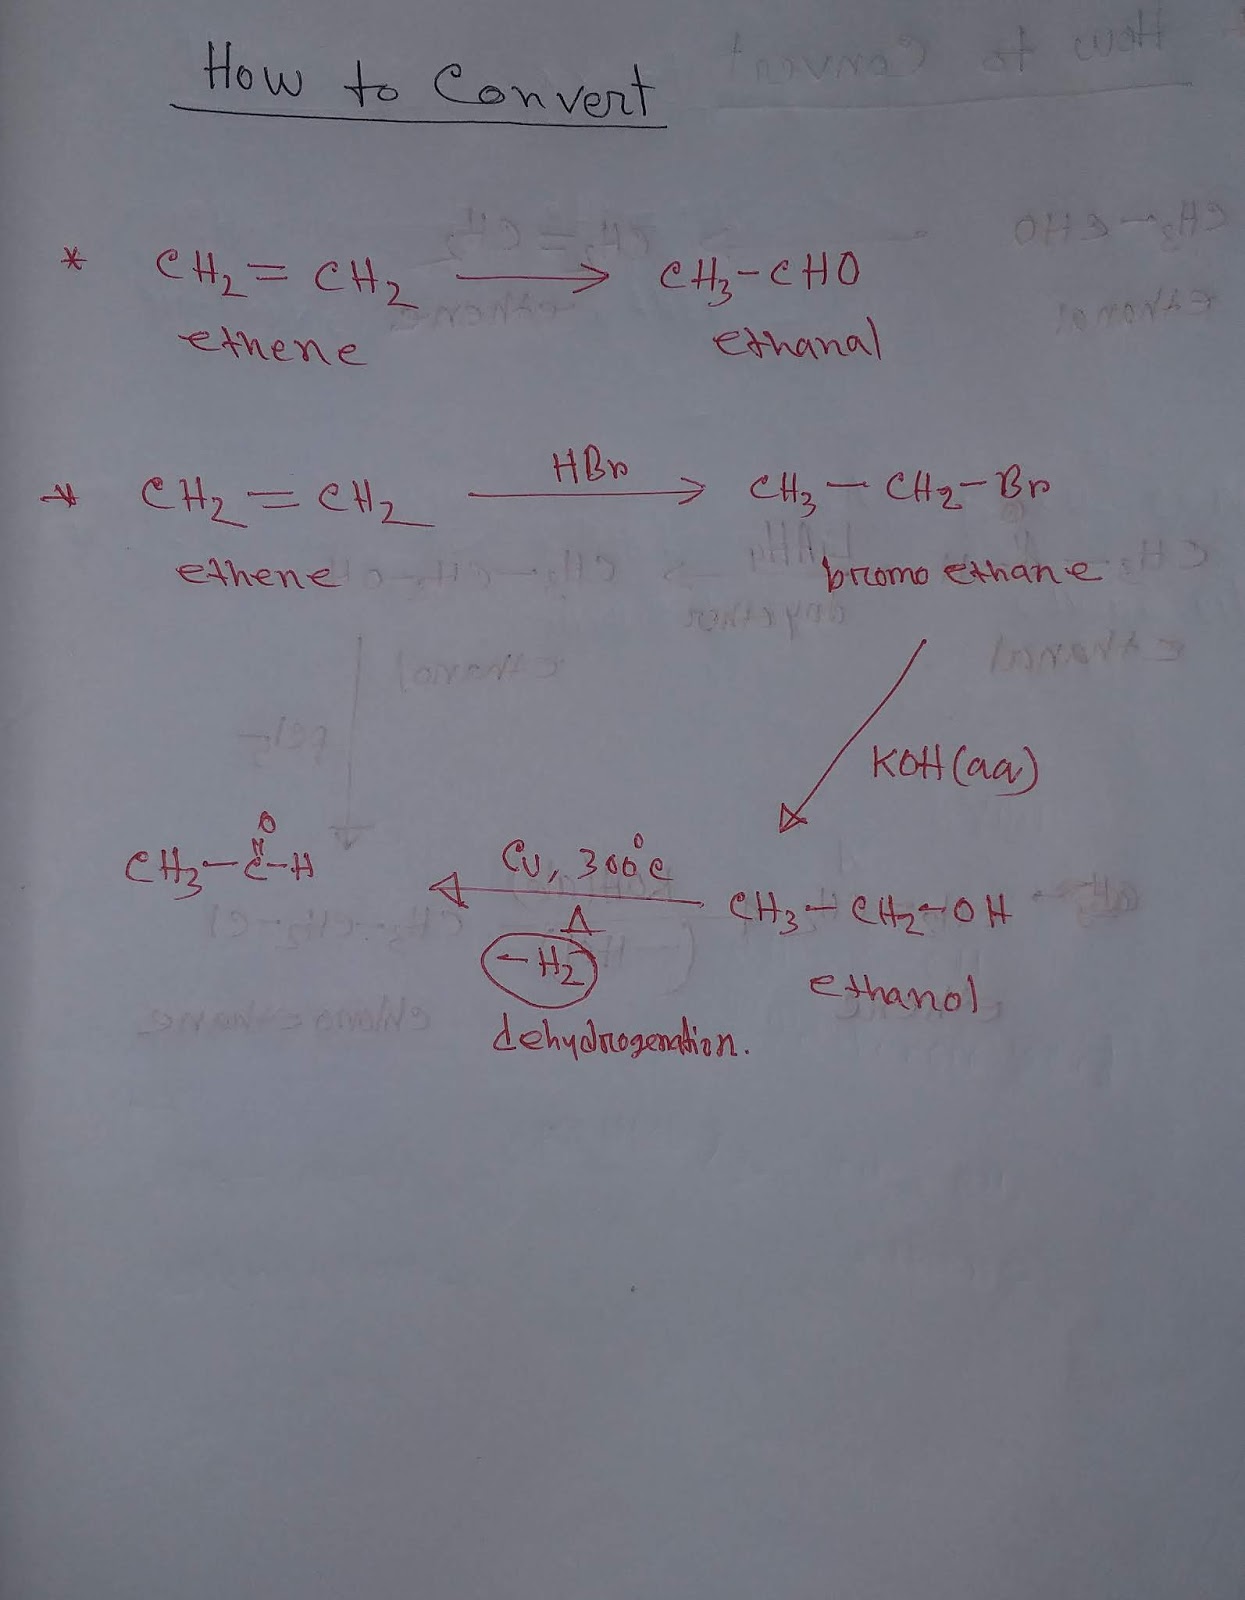 How to Convert
* CH2 = CH2 → CH3-CHO
ethene ethanal
* CH2 = CH2 HBr → CH3 — CH2-Br
ethene bromo ethane
KOH (aq)
O
CH3 — C — H Cu, 300°C CH3 — CH2-OH
Δ
-H2 ethanol
dehydrogenation.